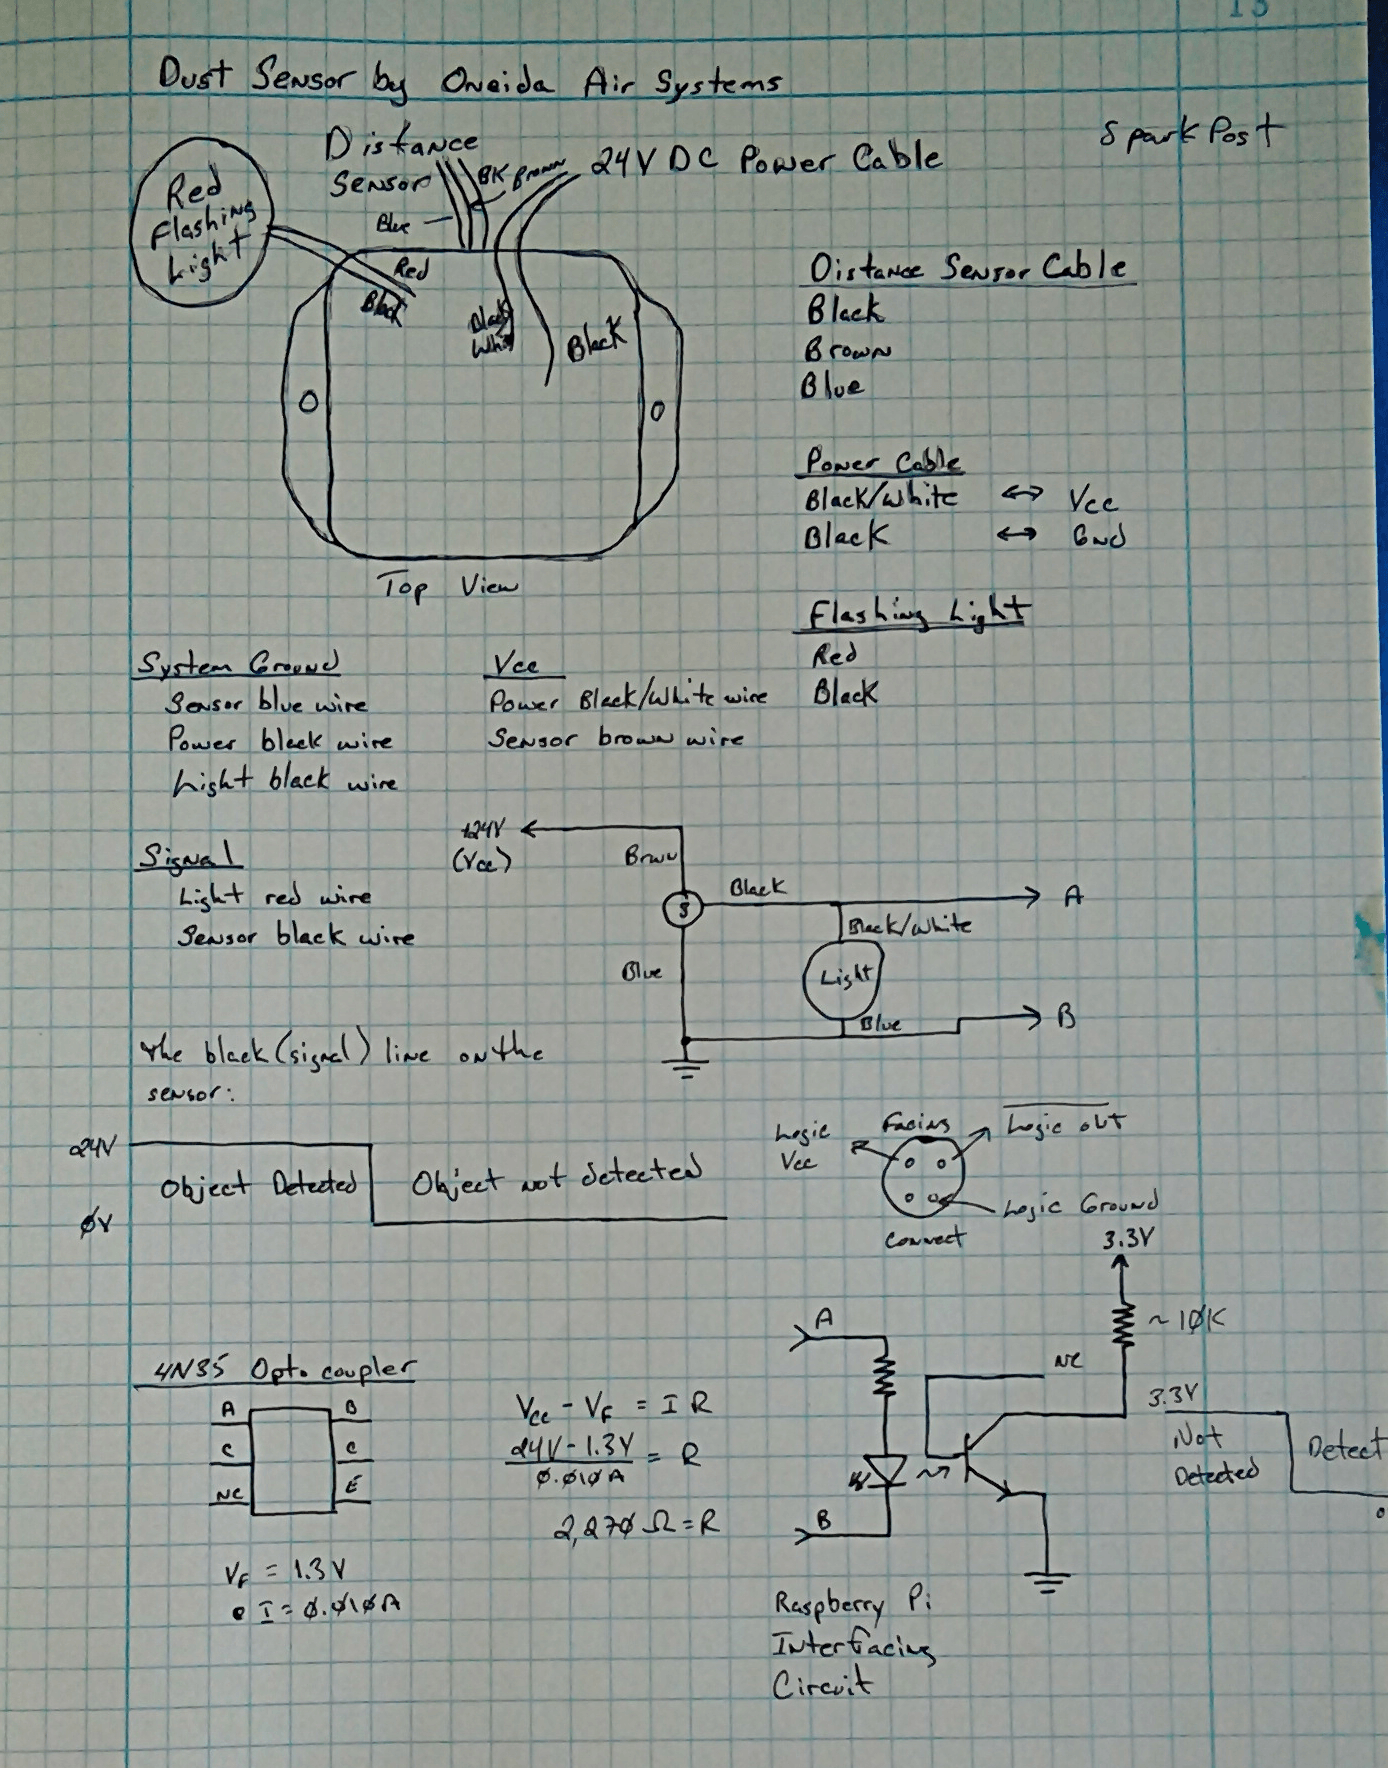 13
Dust Sensor by Oneida Air Systems
SparkPost
Distance
Sensor
BK Brown
24V DC Power Cable
Blue
Red
Flashing
Light
Red
Black
Black
White
Black
Top View
Distance Sensor Cable
Black
Brown
Blue
Power Cable
Black/White ↔ Vcc
Black ↔ Gnd
Flashing Light
Red
Black
System Ground
Sensor blue wire
Power black wire
Light black wire
Vcc
Power Black/White wire
Sensor brown wire
Signal
Light red wire
Sensor black wire
+24V
(Vcc)
Brown
S
Black
A
Black/White
Light
Blue
Blue
B
The black (signal) line on the
sensor:
24V
Object Detected
Object not detected
0V
Logic
Vcc
Facing
Logic out
Logic Ground
Connect
3.3V
~10K
A
NC
3.3V
Not
Detected
Detect
0
B
4N35 Optocoupler
A B
C C
NC E
VF = 1.3V
@ I = 0.010A
Vcc - VF = I R
24V - 1.3V
0.010A
= R
2,270 Ω = R
Raspberry Pi
Interfacing
Circuit